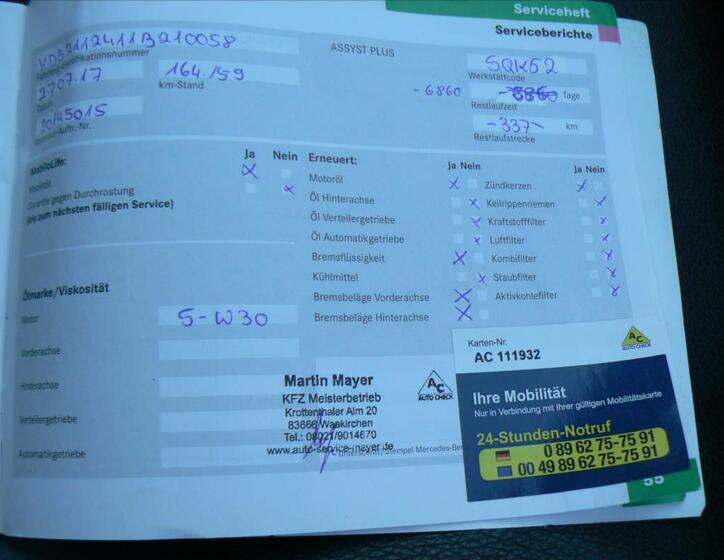 Serviceheft
Serviceberichte
WDB2112411B210058
Fahrzeug-Identifikationsnummer
ASSYST PLUS
SQK52
Werkstattcode
27.07.17
Datum
164.159
km-Stand
-6860
Tage
Restlaufzeit
20145015
Auftr.-Nr.
-337
km
Restlaufstrecke
MobiloLife:
Ja Nein
Mobilität
Garantie gegen Durchrostung
(bis zum nächsten fälligen Service)
Erneuert:
Ja Nein
Ja Nein
Motoröl
Zündkerzen
Öl Hinterachse
Keilrippenriemen
Öl Verteilergetriebe
Kraftstofffilter
Öl Automatikgetriebe
Luftfilter
Bremsflüssigkeit
Kombifilter
Kühlmittel
Staubfilter
Bremsbeläge Vorderachse
Aktivkohlefilter
Bremsbeläge Hinterachse
Ölmarke/Viskosität
Motor
5-W30
Vorderachse
Hinterachse
Verteilergetriebe
Automatikgetriebe
Martin Mayer
KFZ Meisterbetrieb
Krottenthaler Alm 20
83666 Waakirchen
Tel.: 08021/9014670
www.auto-service-meyer.de
AC
AUTO CHECK
Unterschrift/Stempel Mercedes-Be
Karten-Nr.
AC 111932
AC
AUTO CHECK
Ihre Mobilität
Nur in Verbindung mit Ihrer gültigen Mobilitätskarte
24-Stunden-Notruf
0 89 62 75-75 91
00 49 89 62 75-75 91
55